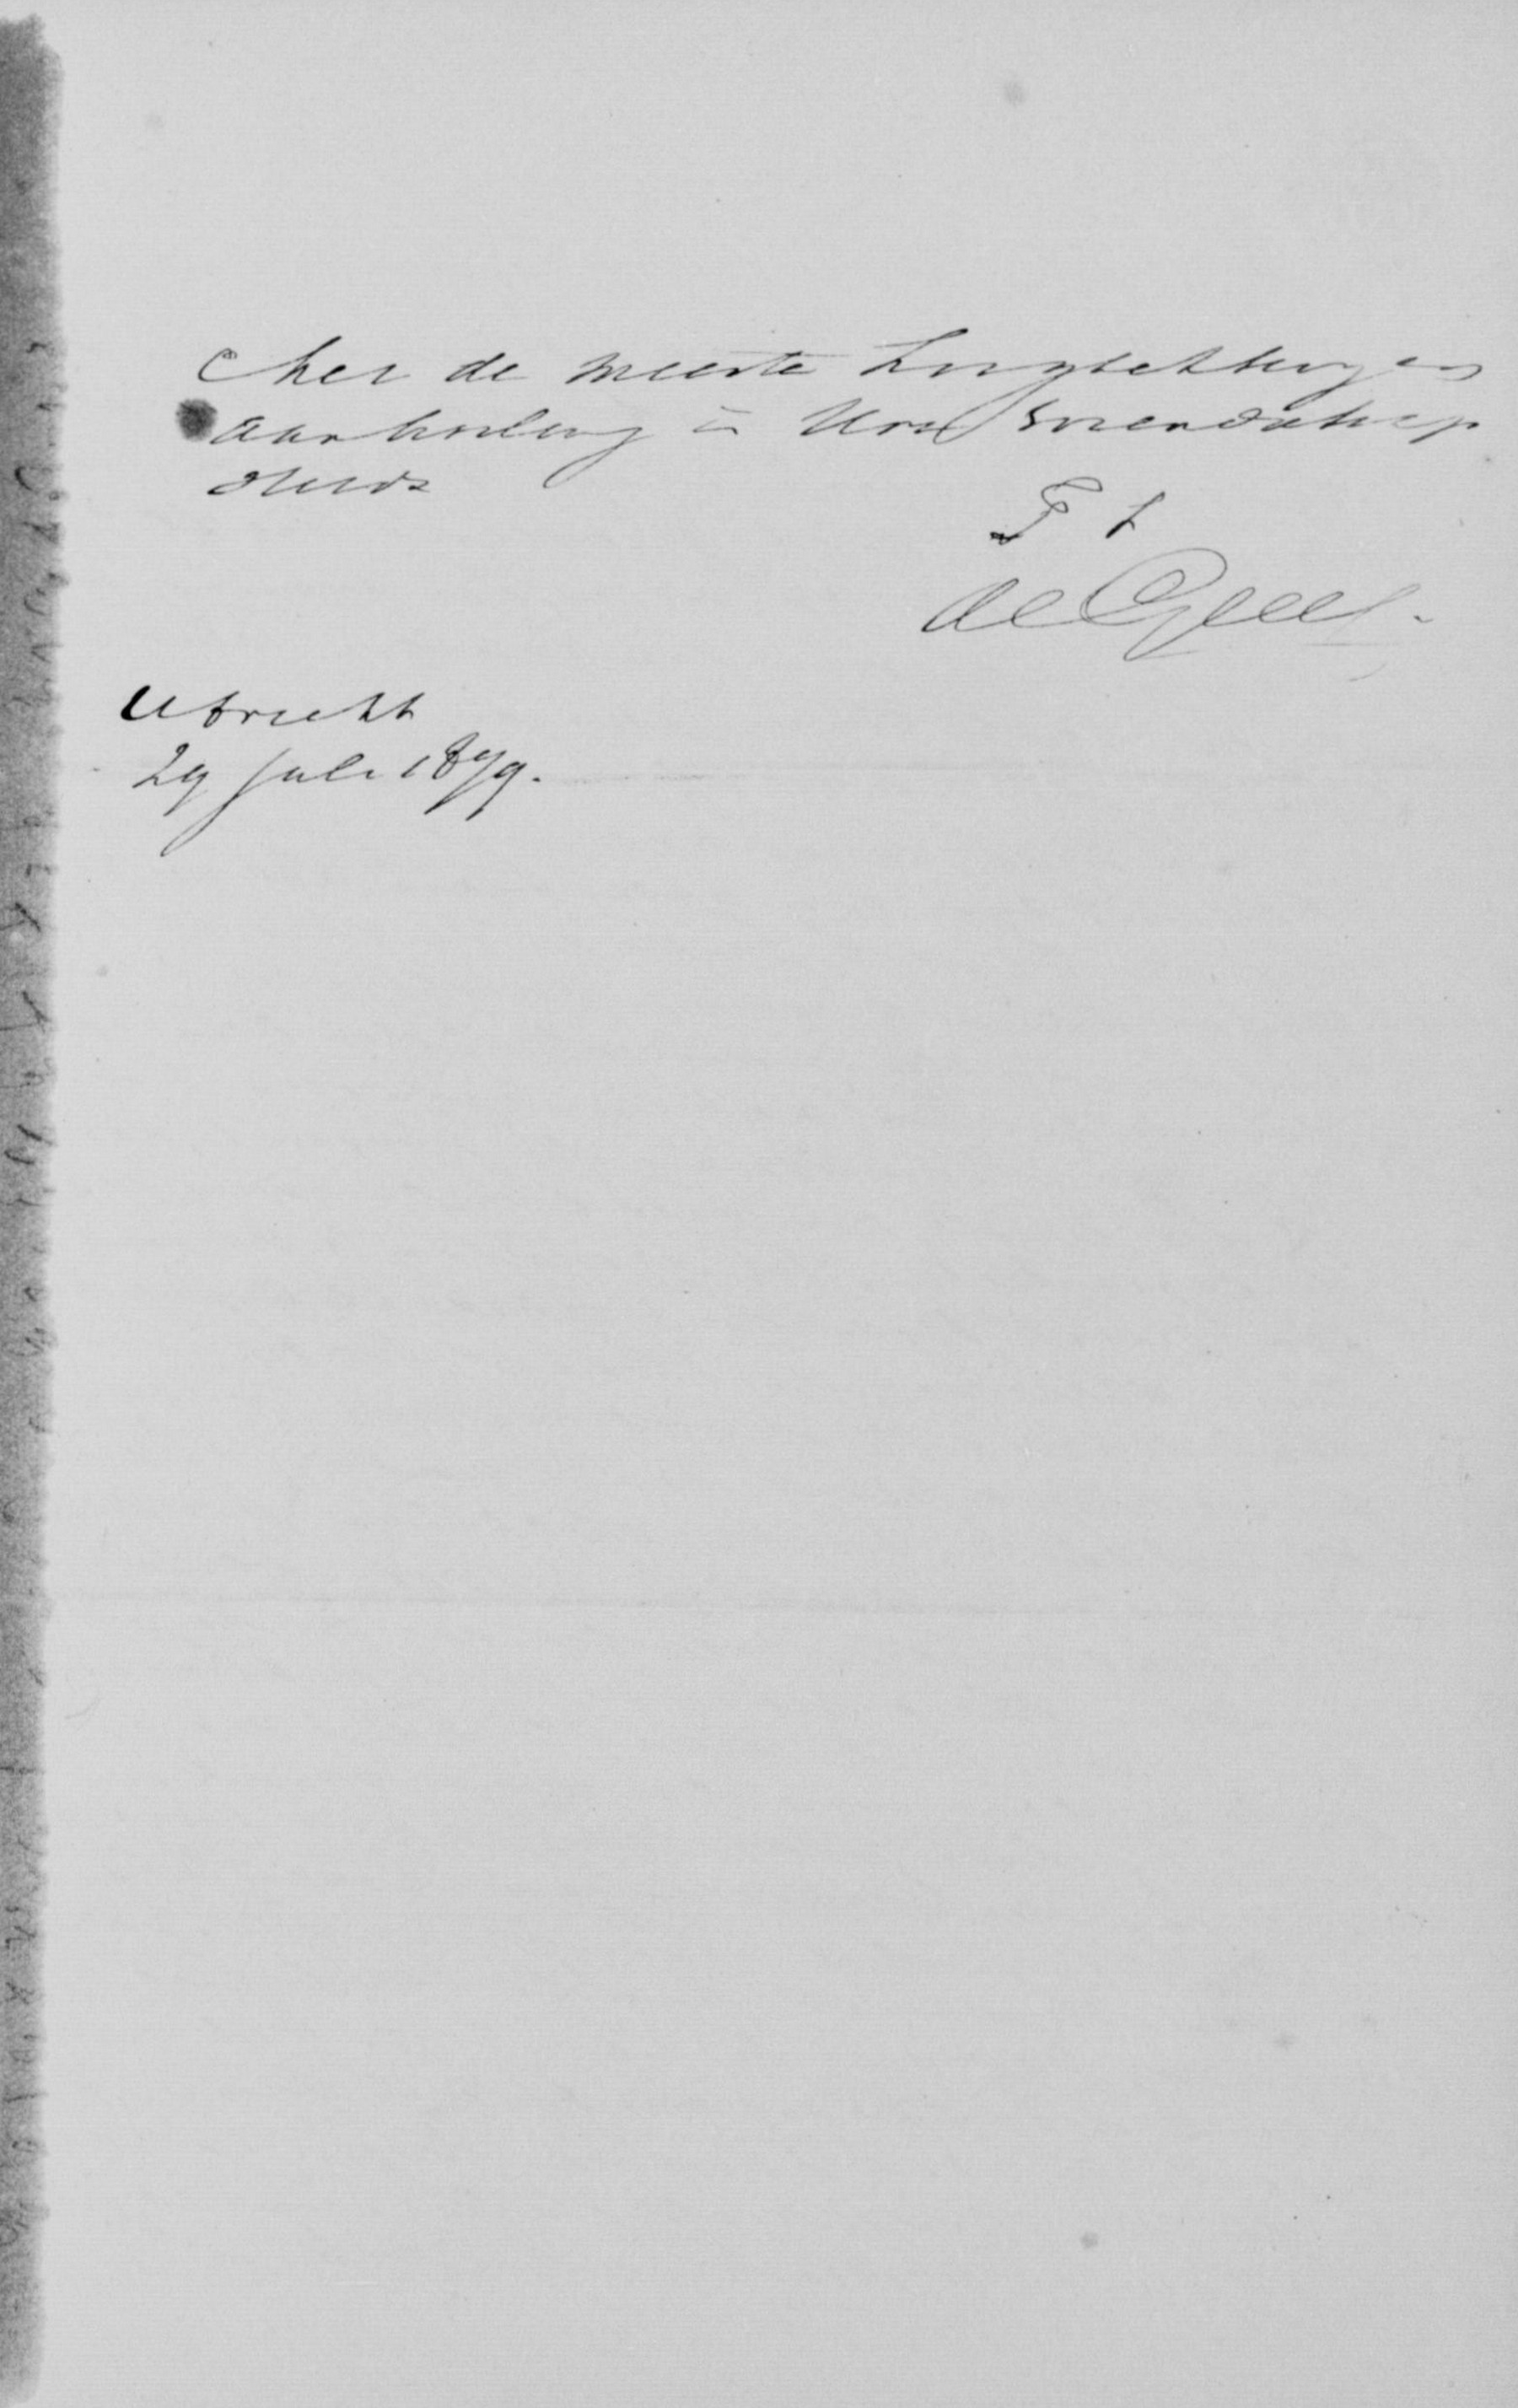 Met de meeste hoogachting en
aanbeveling in Uwe vriendschap
steeds
T t
de Geer.
Utrecht
29 Juli 1879.